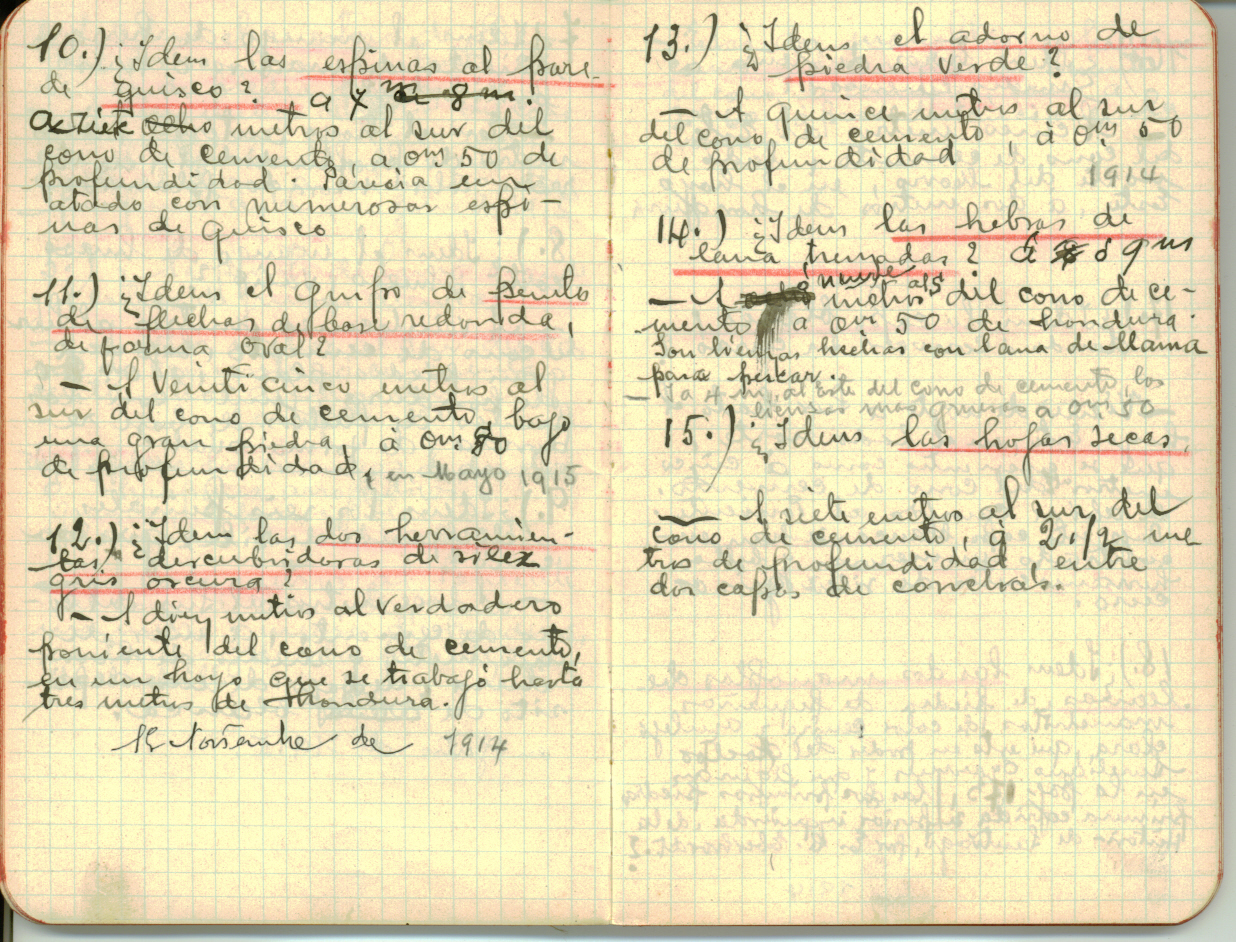 10.) ¿Idem las espinas al pare-
de quisco? a 7 m a 8 m.
a siete ocho metros al sur del
cono de cemento, a 0m 50 de
profundidad. Parecia un
atado con numerosas espi-
nas de quisco
11.) ¿Idem el grupo de punta
de flechas de base redonda,
de forma oval?
— A veinticinco metros al
sur del cono de cemento, bajo
una gran piedra, à 0m 80
de profundidad, en Mayo 1915
12.) ¿Idem las dos herramien-
tas descubridoras de silex
gris oscura?
— A diez metros al verdadero
poniente del cono de cemento,
en un hoyo que se trabajó hasta
tres metros de hondura.
Noviembre de 1914
13.) ¿Idem el adorno de
piedra verde?
— A quince metros al sur
del cono de cemento, à 0m 50
de profundidad
1914
14.) ¿Idem las hebras de
lana trenzadas? à 9 m
nueve al S
— A metros del cono de ce-
mento, a 0m 50 de hondura.
Son lienzas hechas con lana de llama
para pescar.
— I a 4 m. al Este del cono de cemento, las
lienzas mas gruesas a 0m 50
15.) ¿Idem las hojas secas.
— A siete metros al sur del
cono de cemento, à 2 1/2 me
tros de profundidad, entre
dos capas de conchas.